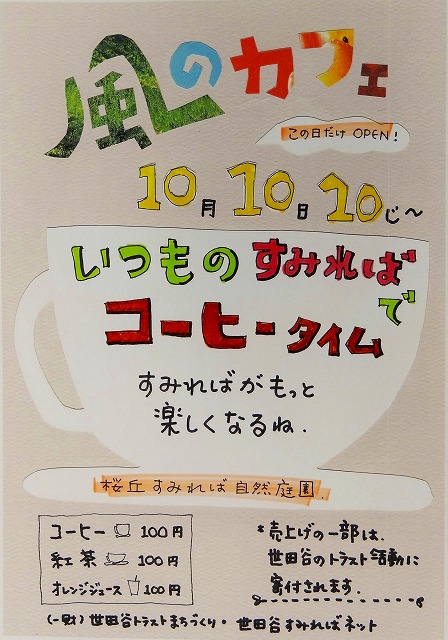 風のカフェ
この日だけ OPEN!
10月10日10じ〜
いつものすみればで
コーヒータイム
すみればがもっと
楽しくなるね.
桜丘すみれば自然庭園
コーヒー 100円
紅茶 100円
オレンジジュース 100円
*売上げの一部は.
世田谷のトラスト活動に
寄付されます.
(一財)世田谷トラストまちづくり・世田谷すみればネット